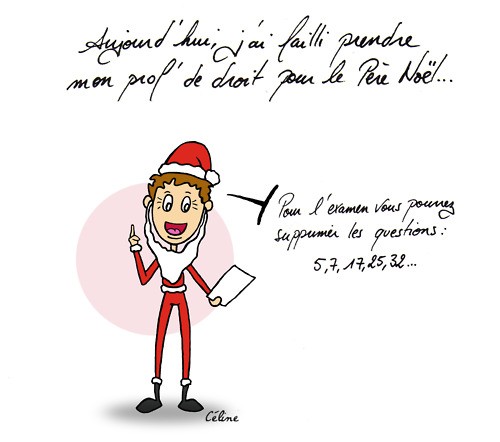 Aujourd'hui, j'ai failli prendre
mon prof' de droit pour le Père Noël...
Pour l'examen vous pourrez
supprimer les questions :
5, 7, 17, 25, 32...
Céline